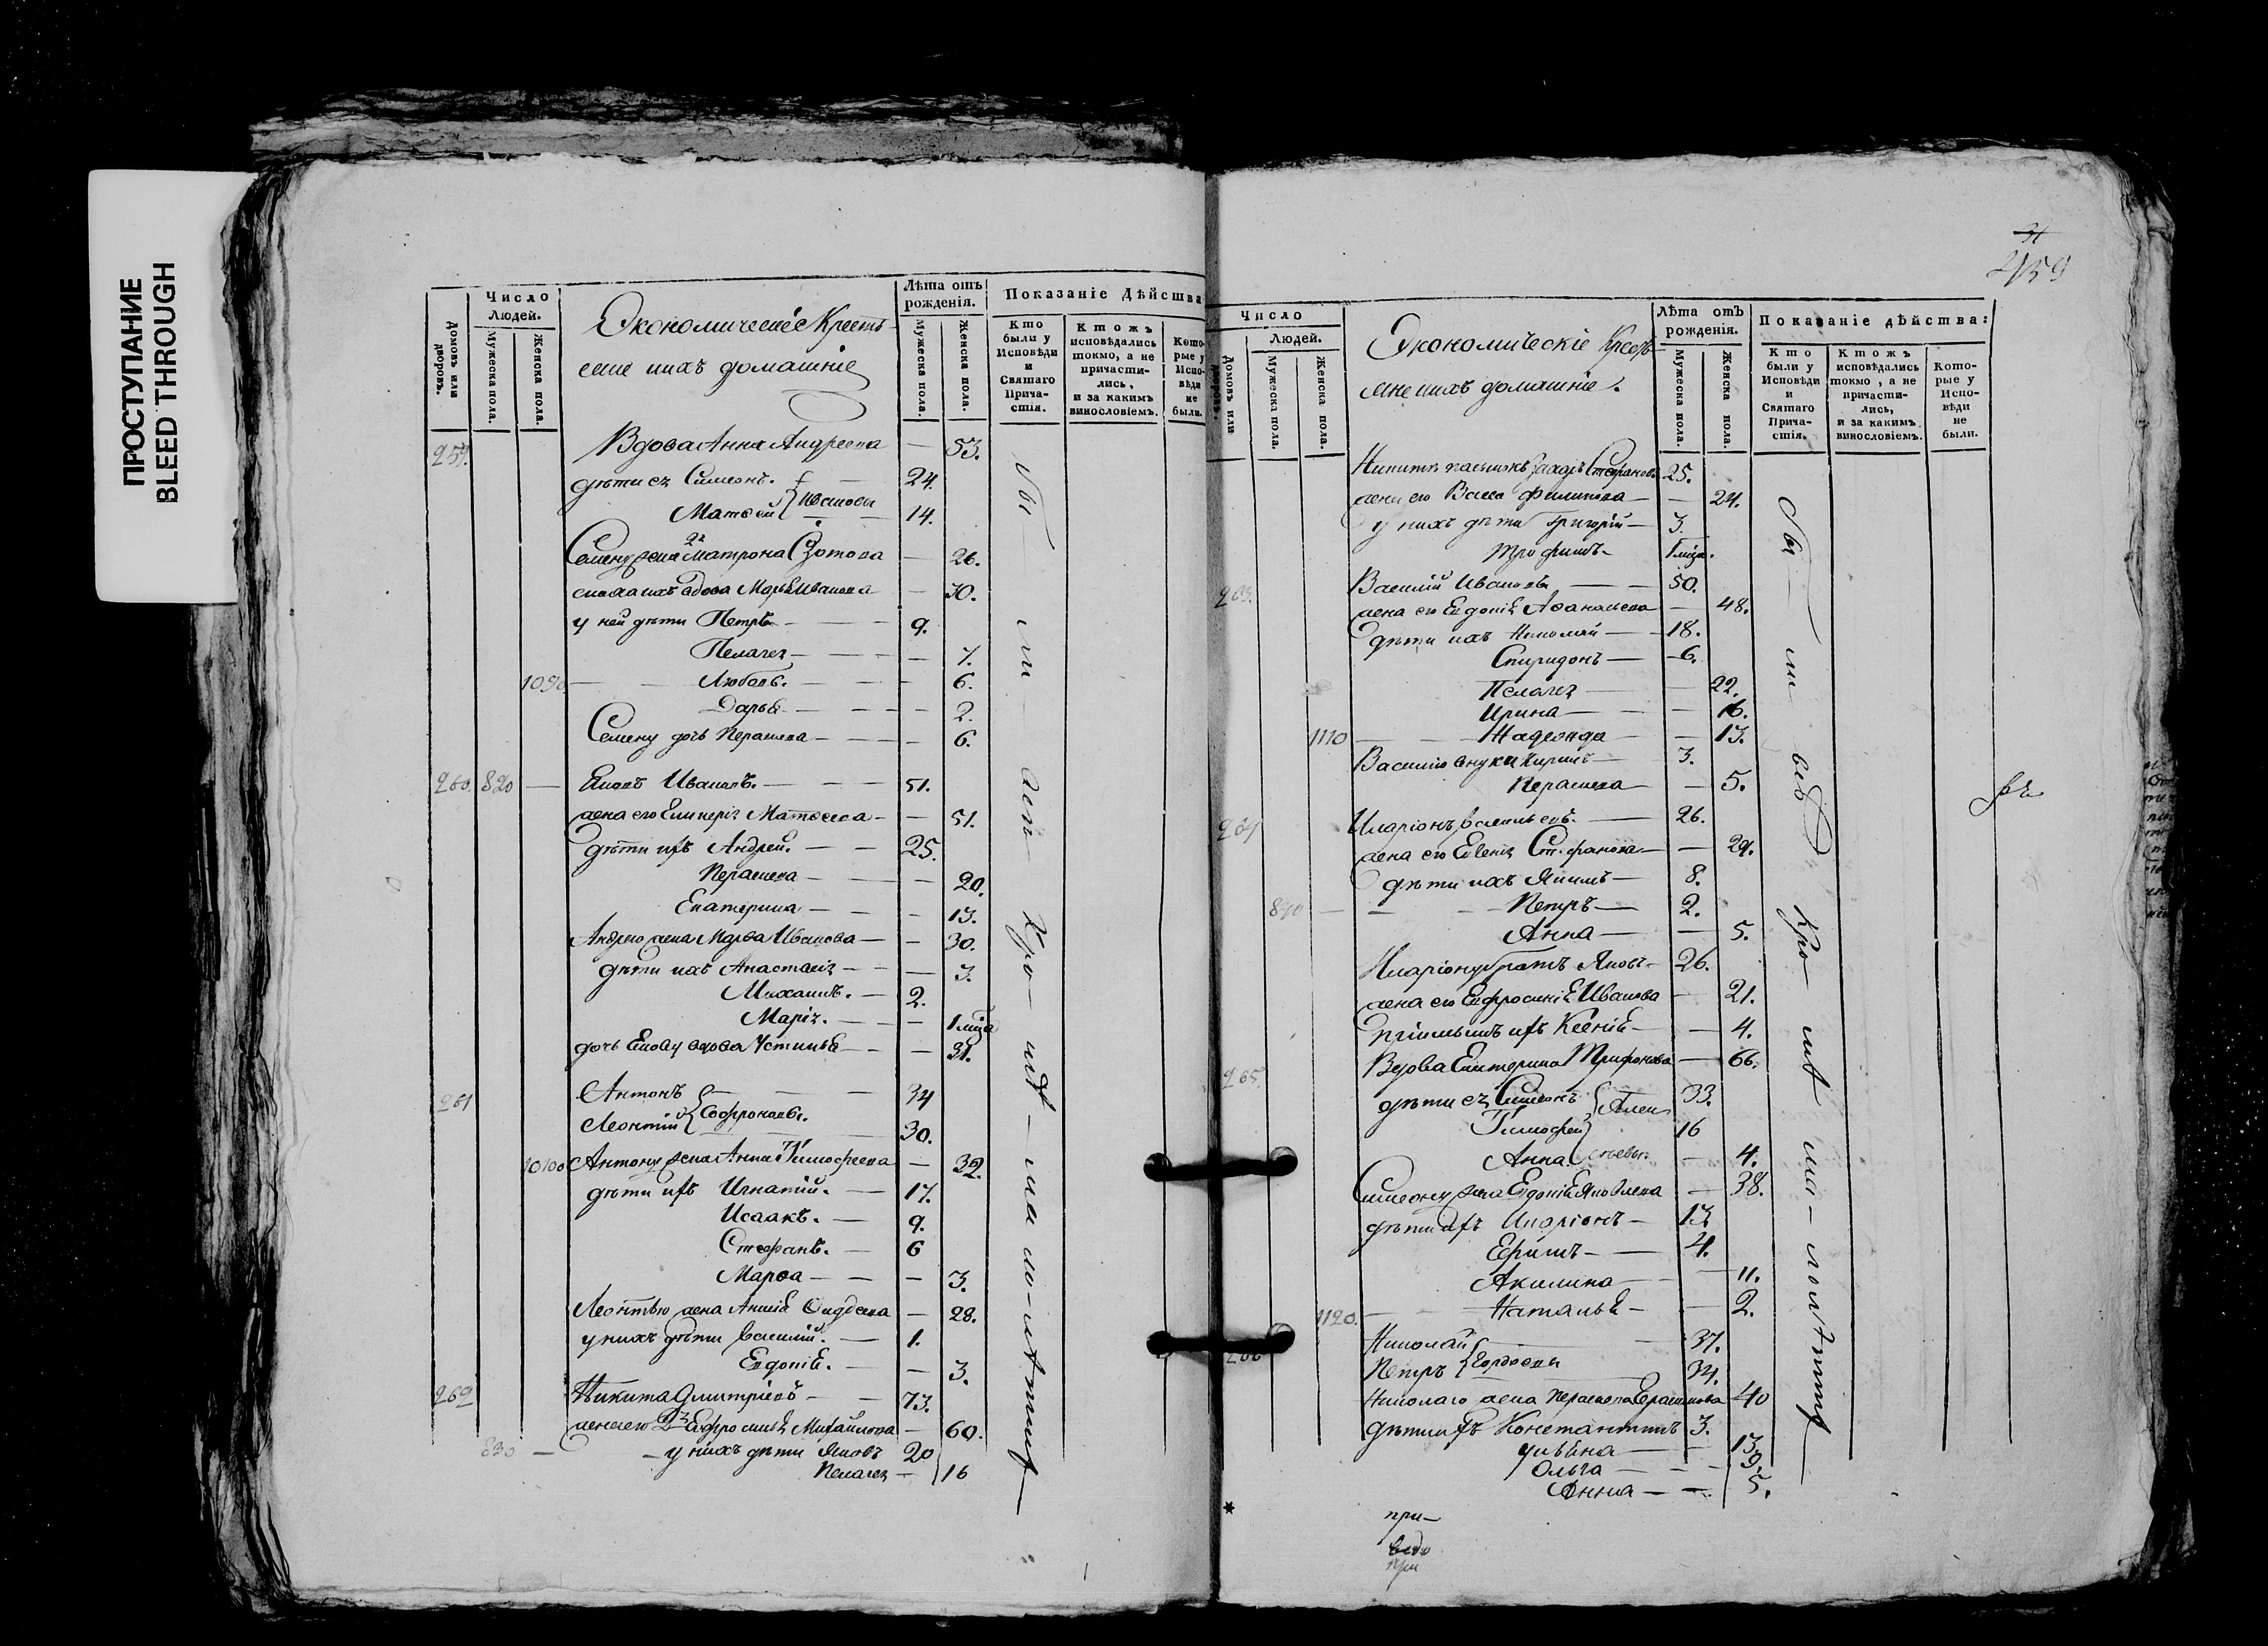 ПРОСТУПАНИЕ
BLEED THROUGH
Домовъ или дворовъ.
Число Людей.
Мужеска пола.
Женска пола.
Экономическіе Крестьяне
ихъ домашніе
Лѣта отъ рожденія.
Мужеска пола.
Женска пола.
Показаніе Дѣйства
Кто были у Исповѣди и Святаго Причастія.
Ктожъ исповѣдались токмо, а не причастились, и за какимъ винословіемъ.
Которые у Исповѣди не были.
259. Вдова Анна Андреева — 53.
дѣти ея Симеонъ. 24.
Матѳей } Ивановы 14.
Семену жена 2я Матрона Зотова — 26.
сноха ихъ вдова Марья Иванова — 30.
у ней дѣти Петръ — 9.
Пелагея — 7.
1090 — Любовь. — 6.
Дарья — 2.
Семену дочь Параскева — 6.
260. 820 — Іаковъ Ивановъ. — 51.
жена его Матѳеева — 51.
дѣти ихъ Андрей. — 25.
Параскева — 20.
Екатерина — 13.
Андрею жена Марѳа Иванова — 30.
дѣти ихъ Анастасія — 3.
Михаилъ. — 2.
Марія. — 1 мца
дочь вдова Устинья — 31.
261 Антонъ — 34
Леонтій } Софроновы. 30.
10100 Антону жена Анна Тимофеева — 32.
дѣти ихъ Игнатій. — 17.
Исаакъ. — 9.
Стефанъ. — 6
Марѳа — 3.
Леонтью жена — 28.
у нихъ дѣти Василій. — 1.
Евдокія. — 3.
262 Никита Дмитріевъ — 73.
жена его 2я Ефросинья Михайлова — 60.
830 — у нихъ дѣти Яковъ 20
Пелагея — 16
были испо
31
459
Домовъ или дворовъ.
Число Людей.
Мужеска пола.
Женска пола.
Экономическіе Крестьяне
ихъ домашніе.
Лѣта отъ рожденія.
Мужеска пола.
Женска пола.
Показаніе дѣйства:
Кто были у Исповѣди и Святаго Причастія.
Ктожъ исповѣдались токмо, а не причастились, и за какимъ винословіемъ.
Которые у Исповѣди не были.
Никиты пасынокъ Захаръ Стефановъ 25.
жена его Васса Филипова — 24.
у нихъ дѣти Григорій — 3
Трофимъ — 1 мца.
263. Василій Ивановъ — 50.
жена его Евдокія Аѳанасьева — 48.
дѣти ихъ Николай — 18.
Спиридонъ — 6.
Пелагея — 22.
Ирина — 16.
1110 — Надежда — 13.
Василію внуки Кирилъ — 3.
Параскева — 5.
264 Иларіонъ Васильевъ. — 26.
жена его Евгенія Стефанова — 29.
дѣти ихъ Якимъ — 8.
840 — Петръ — 2.
Анна — 5.
Иларіону братъ Яковъ — 26.
жена его Ефросинія Иванова — 21.
ихъ Ксенія — 4.
265. Вдова Екатерина Трифонова — 66.
дѣти ея Симеонъ 33.
Тимофей 16
Анна — 4.
Симеону жена Евдокія Яковлева — 38.
дѣти ихъ Иларіонъ — 13
Ефимъ — 4.
Акилина — 11.
1120. — Наталья — 2.
266 Николай 37.
Петръ } Гордѣевы 34.
Николаю жена Параскева Герасимова 40
дѣти ихъ Константинъ 3.
Ульяна — 13.
Ольга — 9.
Анна — 5.
при—
при